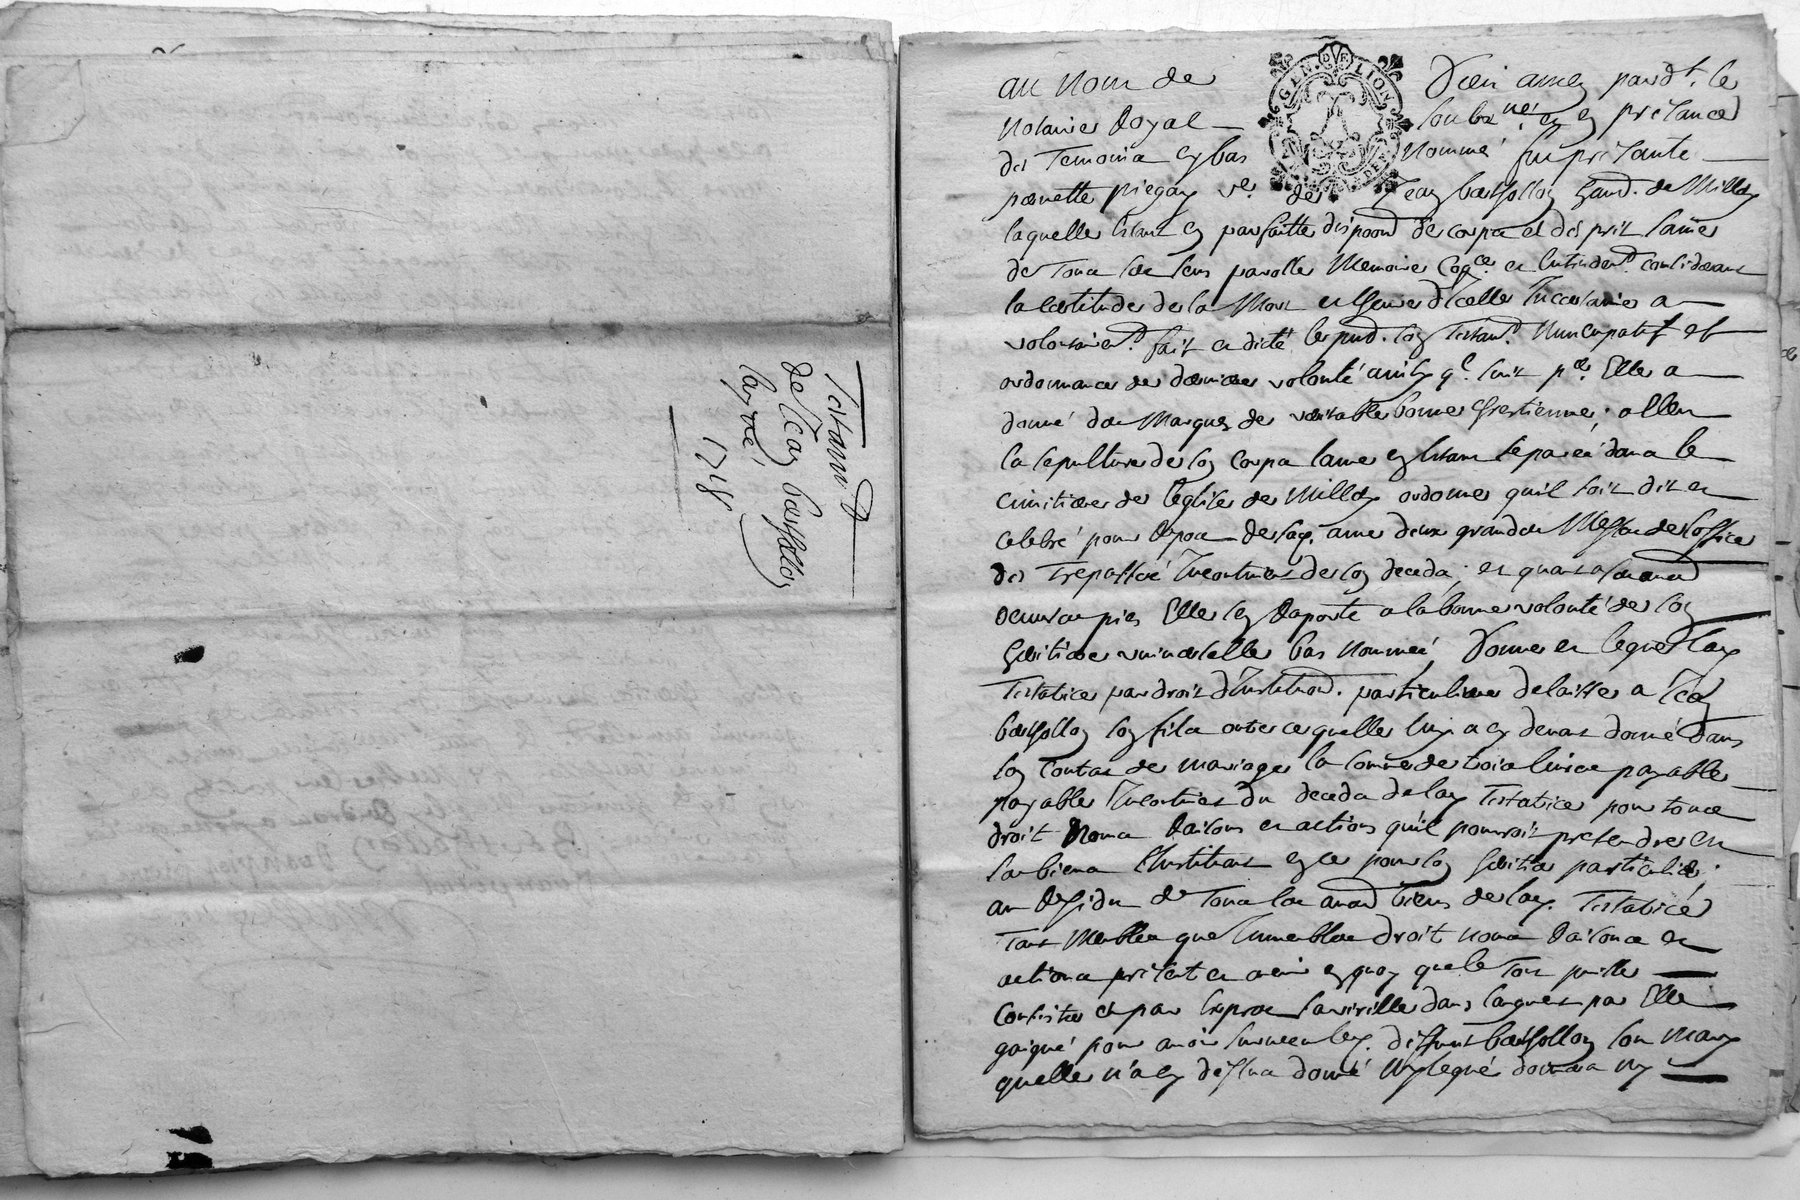 Testam.t
de Jean barthollon
layné
1718
GEN. DE LION
au nom de Dieu amen par dt. le
notaire Royal soubzné et en presance
des Temoins en bas nommé fut presante
pernette ve. de Jean barthollon de Millery
laquelle estant en parfaitte de corps et d'esprit saine
de tous ses sens parolle memoire et entendemt. considerant
la certitude de la mort et l'heure d'Icelle Incertaine a
volontairemt. fait et dicté le pnt. son testamt. Nuncupatif et
ordonnance de derniere volonté ainsy q. suit pre. Elle a
donné des marques de veritable bonne Chrestienne, allen
la sepulture de son corps l'ame en estant separée dans le
cimitiere de l'eglise de Millery ordonne quil soit dit et
celebré pour repos de sad. ame deux grandes Messes de l'office
des Trepassé Incontinent de son deceda; et quant a ses autres
oeuvres pies Elle sen Raporte a la bonne volonté de son
heritiere universelle bas nommée, Donne et legue lad.
Testatrice par droit d'Institution. particuliere delaisse a Jean
barthollon son fils outre ce quelle luy a cy devant donné dans
son Contat de mariage la somme de trois livres payable
payable Incontinent du deceda de lad. Testatrice pour tous
droit noms Raisons et actions quil pourroit pretendre en
ses biens l'Instituant en ce pour son heritier particulier;
au Residu de tous les autres biens de lad. Testatrice
Tant Meubles que Immeubles droit noms Raisons et
actions present et avenir en quoy que le Tout puille
Consister et par Expres dans par Elle
gaigné pour avoir survecu led. deffunt barthollon son mary
quelle n'a cy dessus donné ny legué donnera ny